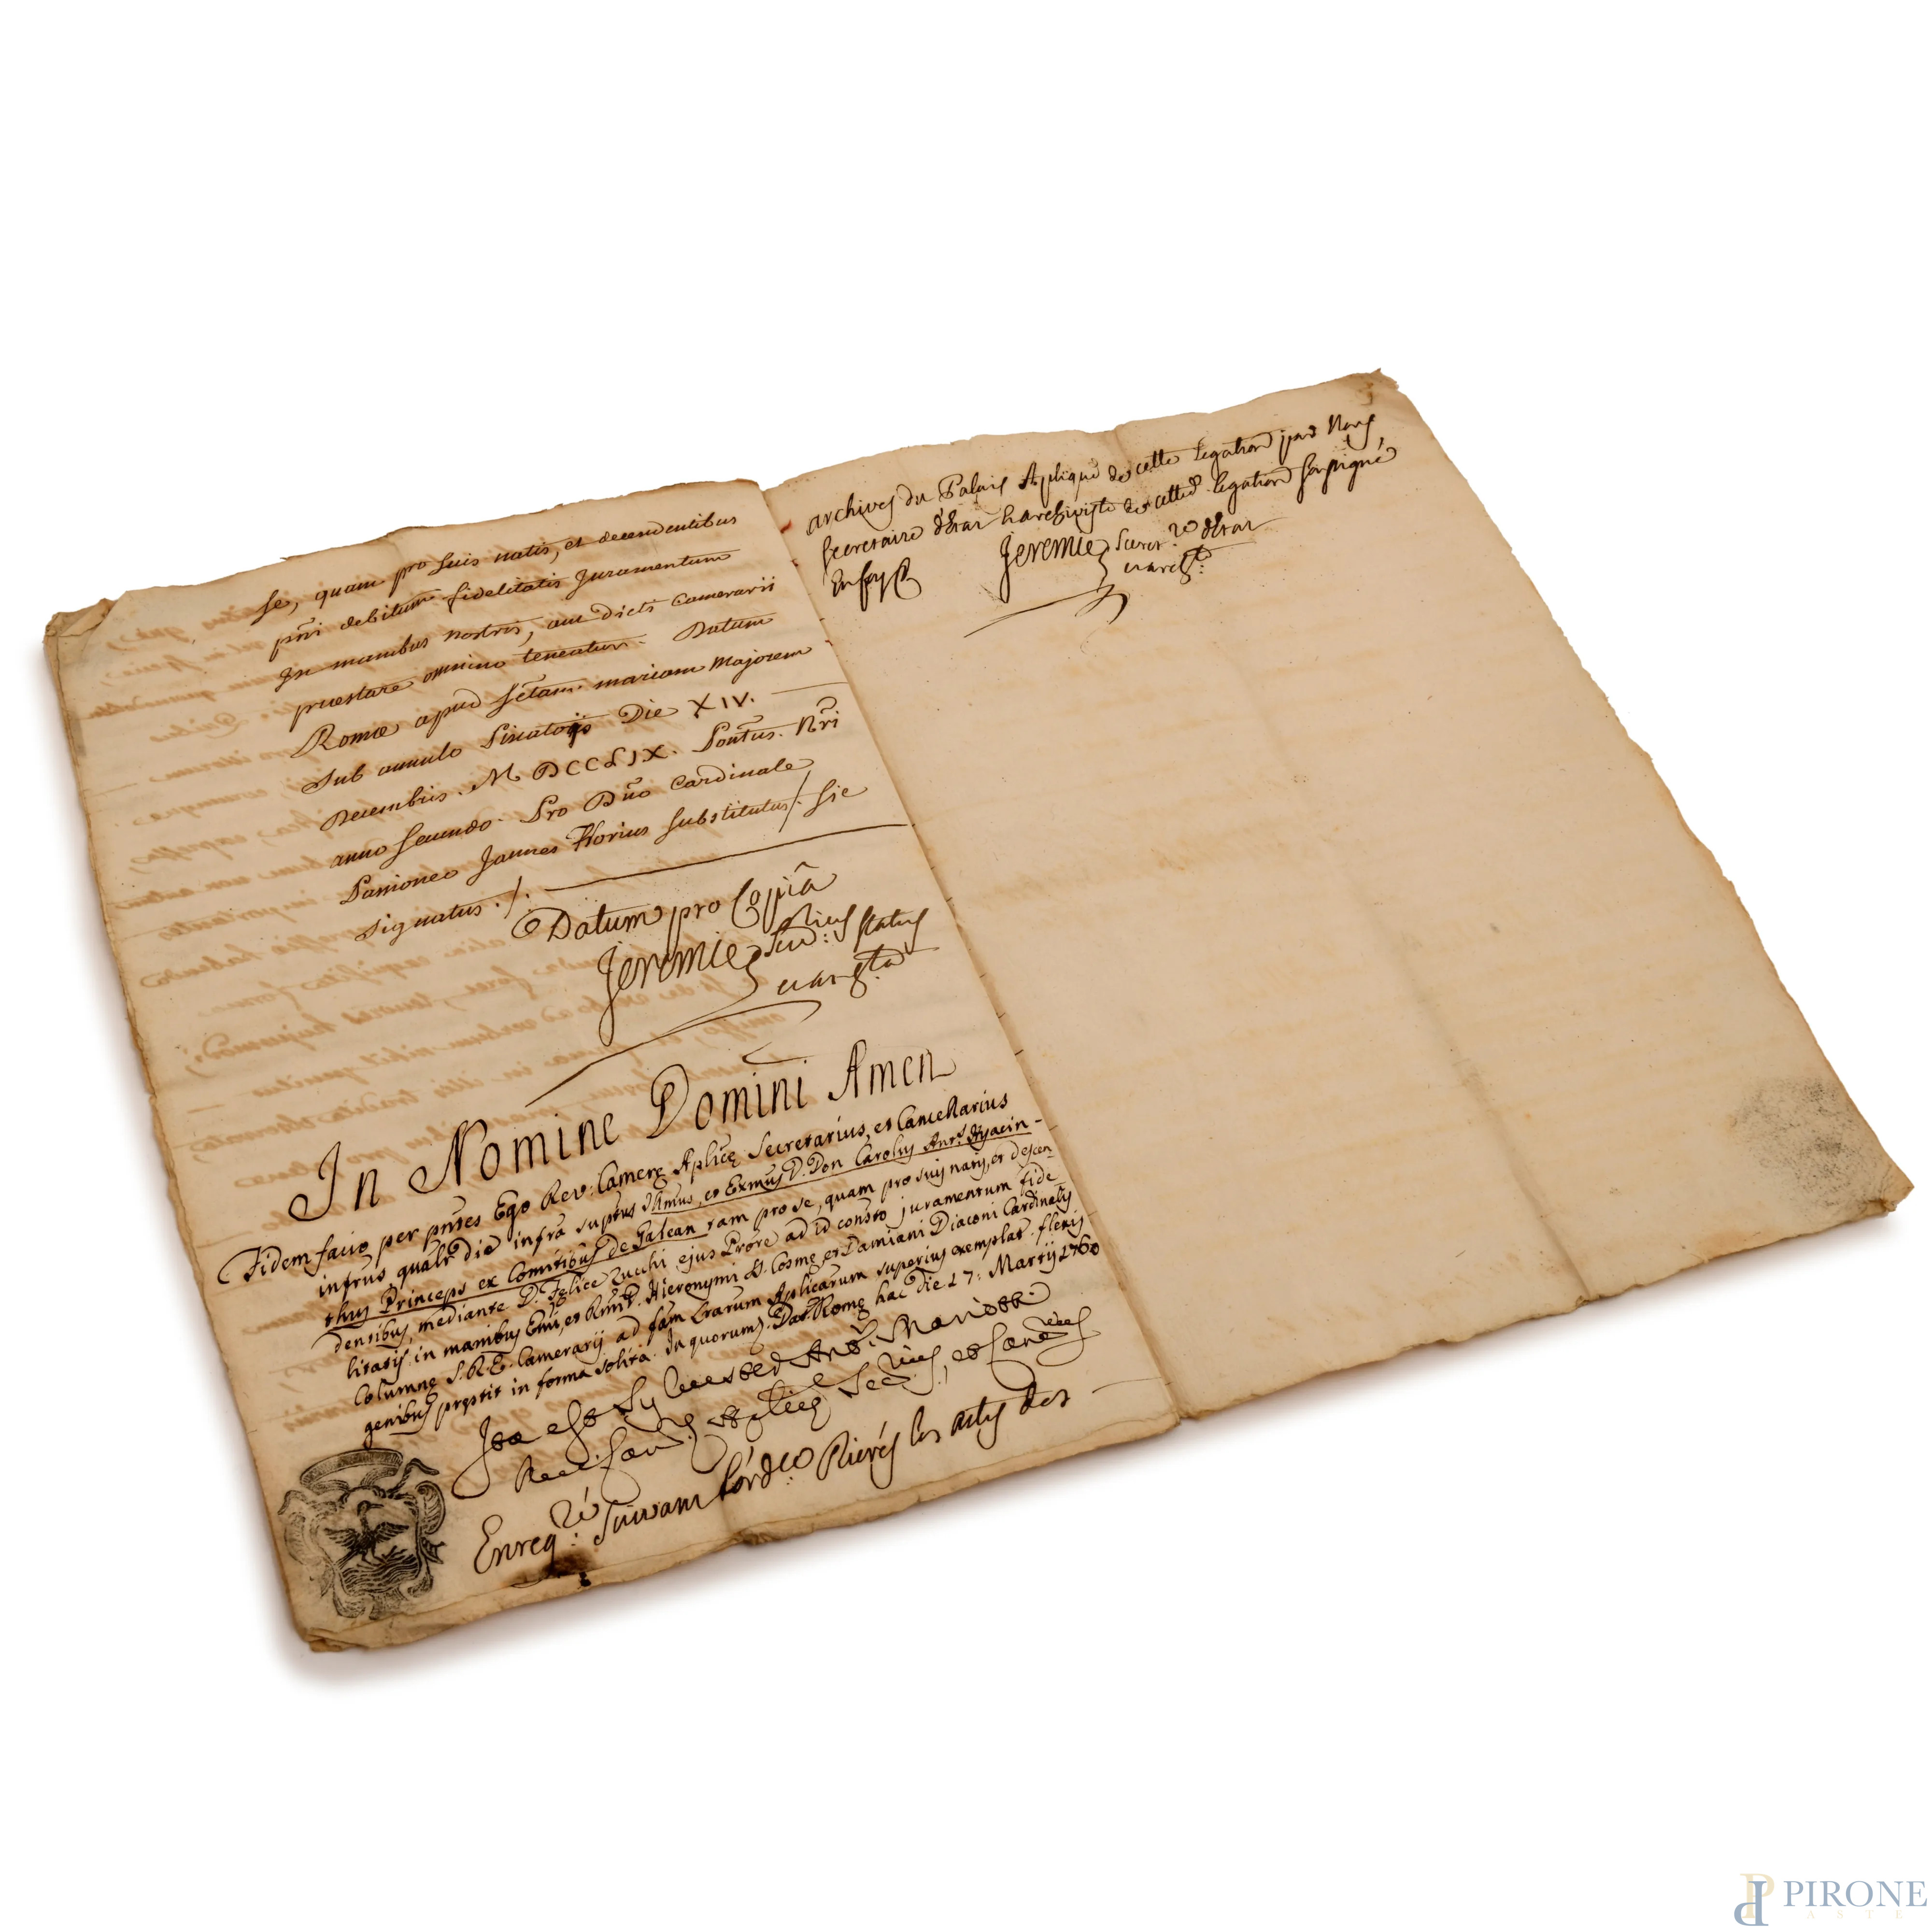 se, quam pro suis natis, et decendentibus
pñri debitum fidelitatis Juramentum
In manibus nostris, aut dicti Camerarii
praestare omnino teneatur. Datum
Romae apud Sctam. mariam Majorem
Sub annulo Piscatoris Die XIV.
Decembris. MDCCLIX. Pontus. Nri
anno Secundo. Pro Dño Cardinale
Passioneo Joannes Florius Substitutus/. Sic
signatus ./.
Datum pro Copiâ
Jeremie Status
In Nomine Domini Amen
Fidem facio per pntes Ego Rev: Camerę Aplicę Secretarius, et Cancellarius
infrus qualr die infra suptus Illmus, et Exmus D. Don Carolus Ants. Hyacin-
thus Princeps ex Comitibus De Galean tam pro se, quam pro suis natis, et descen
dentibus, mediante D. Felice Zucchi ejus Prore ad id consto juramentum fide
litatis in manibus Emi, et Rmi D. Hieronymi SS. Cosmę, et Damiani Diaconi Cardinalis
Columnę S.R.E. Camerarij ad fam Lrarum Aplicarum superius exemplat. flexis
genibus pręstit in forma solita. In quorum. Dat. Romę hac Die 17. Martij 1760
Ita est Sylvester Ant. Mariotti
Rev. Cam. Aplicę Sec.rius, et Canc.rius
Enreg.ré Suivant l'ord.ce Rieres les actes des
archives du Palais Aplique de cette legation par Nous
Secretaire d'Etat et archiviste de cette legation Soussigné
En foy
Jeremie Secret.re d'Etat
et arch.te
PIRONE
ASTE